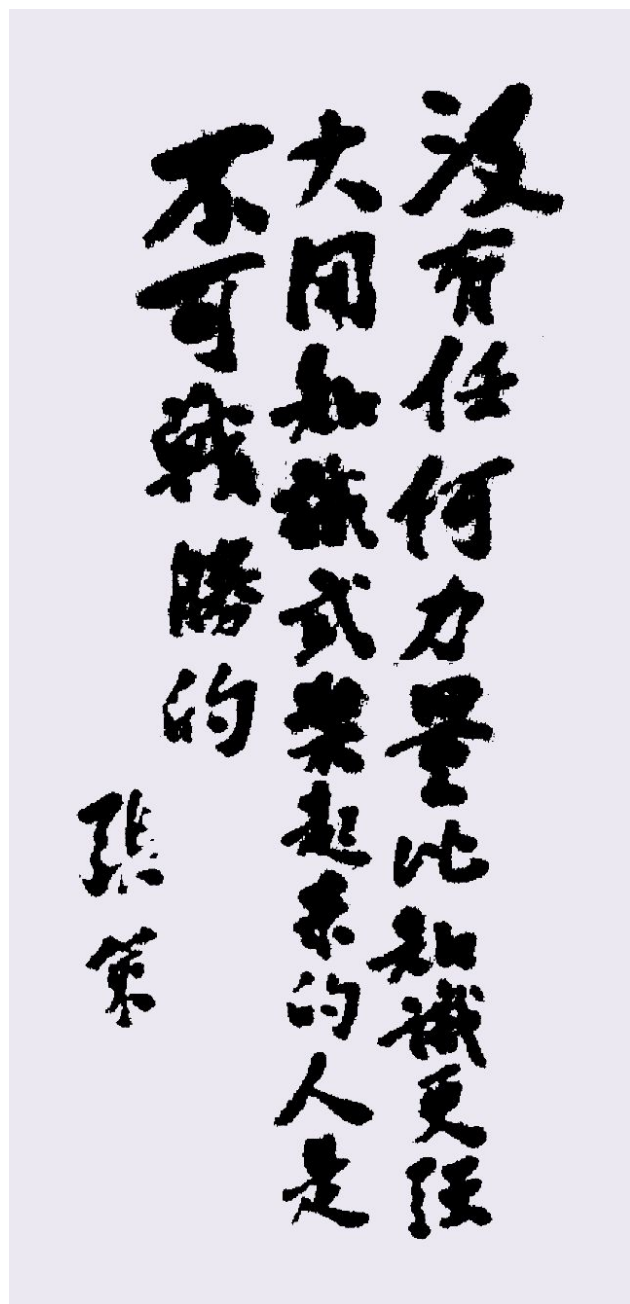 没有任何力量比知識更强
大用知識武装起来的人是
不可戰勝的
張策